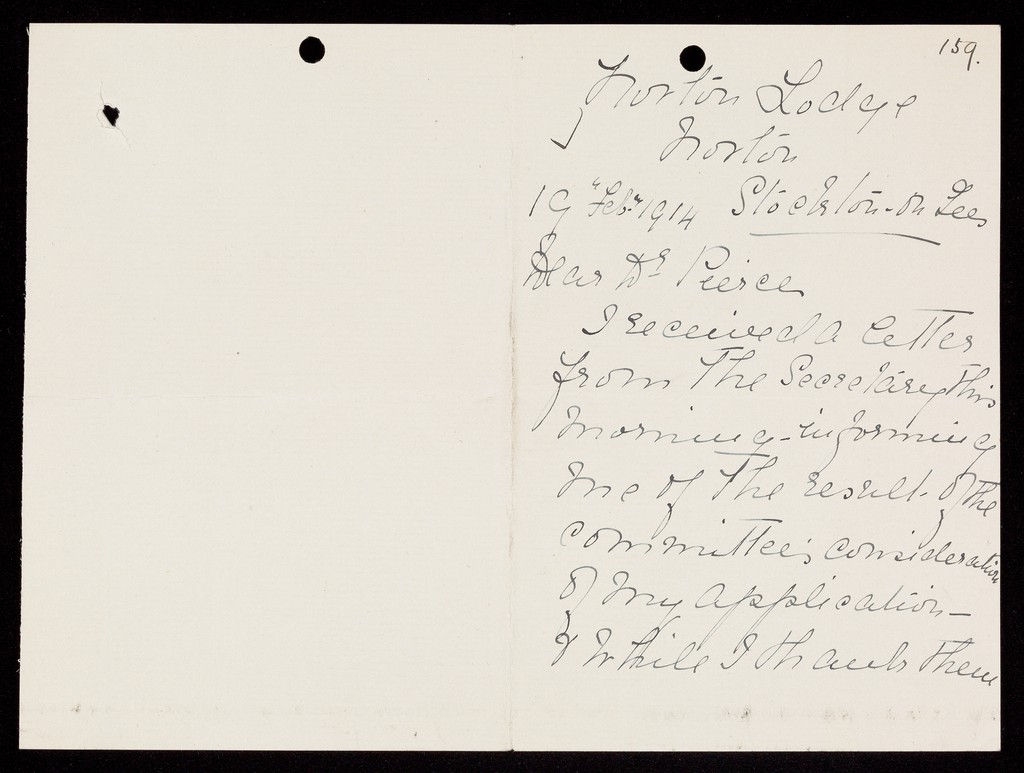 159.
Norton Lodge
Norton
19th Feby 1914 Stockton-on Tees
Dear Dr Pierce
I received a letter
from the Secretary this
morning - informing
me of the result of the
committee's consideration
of my application -
& while I thank them